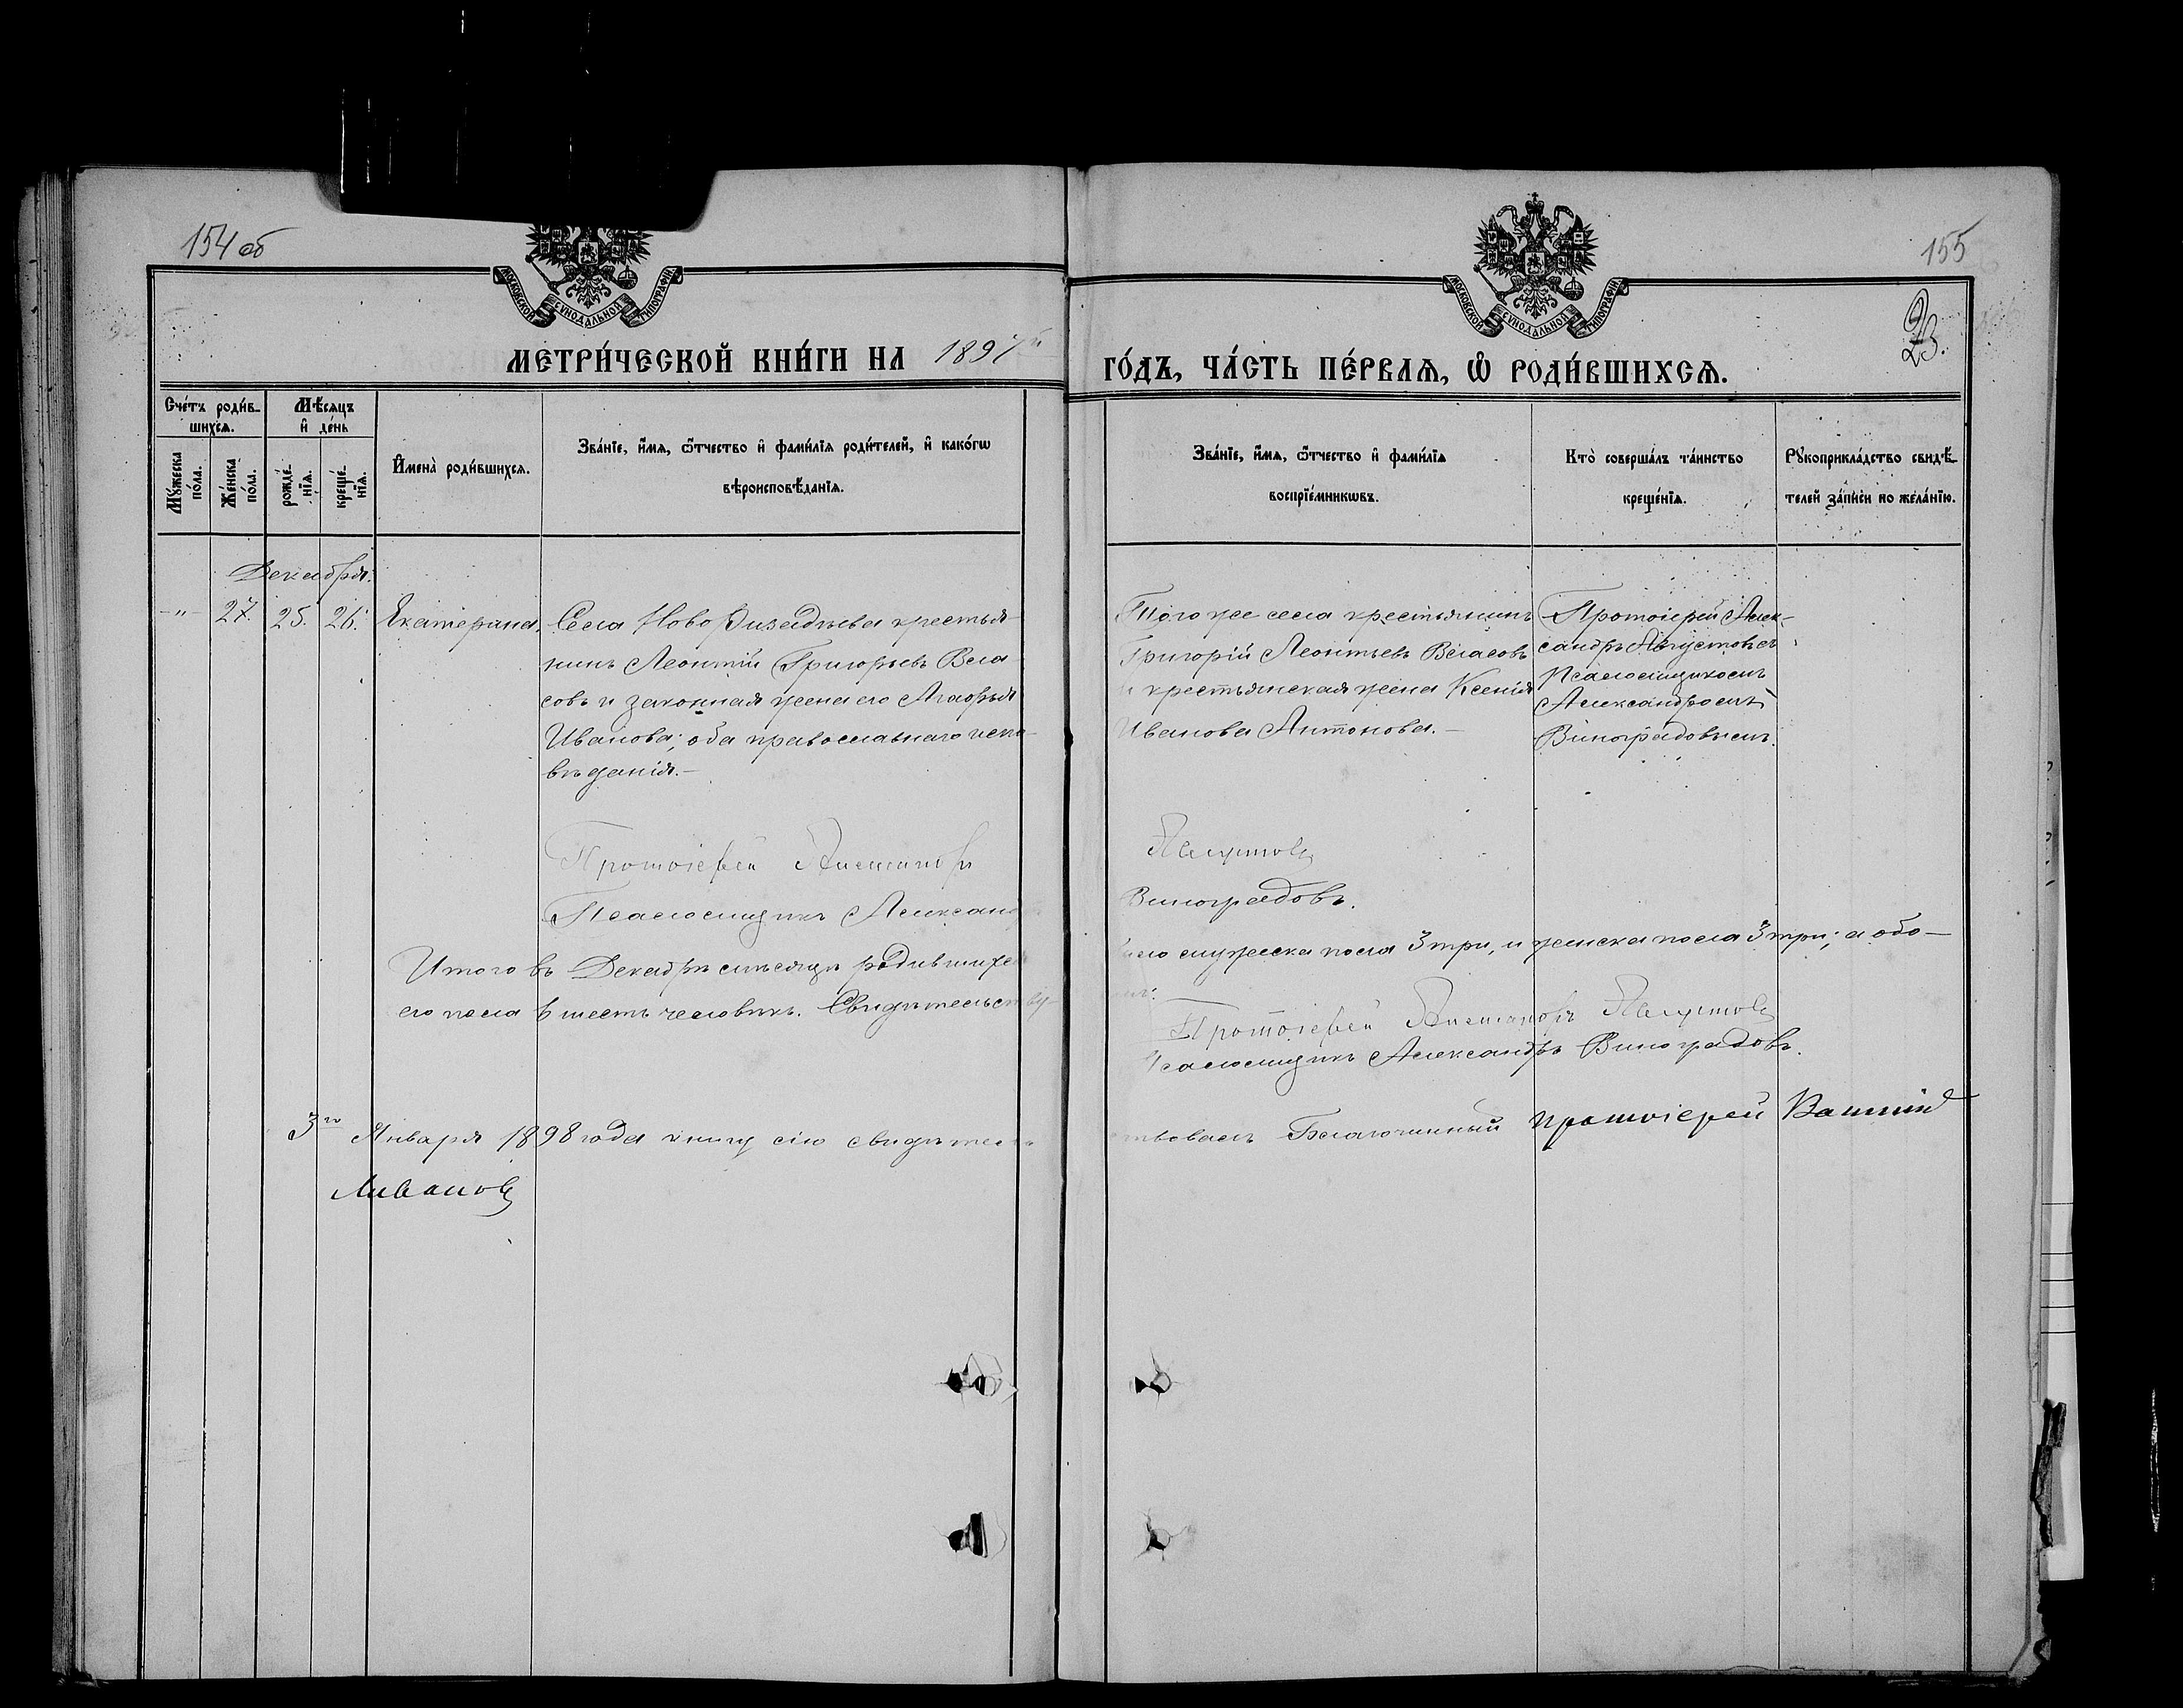 154 об
155
23.
МОСКОВСКОЙ СѴНОДАЛЬНОЙ ТИПОГРАФІИ
МОСКОВСКОЙ СѴНОДАЛЬНОЙ ТИПОГРАФІИ
МЕТРИ́ЧЕСКОЙ КНИ́ГИ НА 1897й
ГО́ДЪ, ЧА́СТЬ ПЕ́РВАѦ, Ѡ҆ РОДИ́ВШИХСѦ.
Сче́тъ роди́в-
шихсѧ.
Мѣ́сѧцъ
и҆ де́нь
Мꙋ́жеска
по́ла.
Же́нска
по́ла.
рожде́-
нїѧ.
креще́-
нїѧ.
И҆мена̀ роди́вшихсѧ.
Зва́нїе, и҆́мѧ, ѻ҆́тчество и҆ фами́лїѧ роди́телей, и҆ како́гѡ
вѣроисповѣ́данїѧ.
Зва́нїе, и҆́мѧ, ѻ҆́тчество и҆ фами́лїѧ
воспрїе́мникѡвъ.
Кто̀ соверша́лъ та́инство
креще́нїѧ.
Рꙋкоприкла́дство свидѣ́-
телей за́писи по жела́нїю.
Декабря.
-"- 27. 25. 26. Екатерина.
Села Ново
крестья-
нинъ Леонтій Григорьевъ Вла-
совъ и законная жена его
Иванова; оба православнаго испо-
вѣданія.-
Того же села крестьянинъ
Григорій Леонтьевъ Власовъ
и крестьянская жена Ксенія
Иванова Антонова.-
Протоіерей Алек-
сандръ
Псаломщикомъ
Александромъ
Виноградовымъ.
Протоіерей Александръ
Псаломщикъ Александ
Виноградовъ.
Итого въ Декабрѣ мѣсяцѣ родившихся
мужеска пола 3 три, и женска пола 3 три; а обо-
его пола 6 шесть человѣкъ. Свидѣтельству-
Протоіерей Александръ
Псаломщикъ Александръ Виноградовъ.
3го Января 1898 года книгу сію свидѣтель
ствовалъ Благочинный Протоіерей
Ливановъ